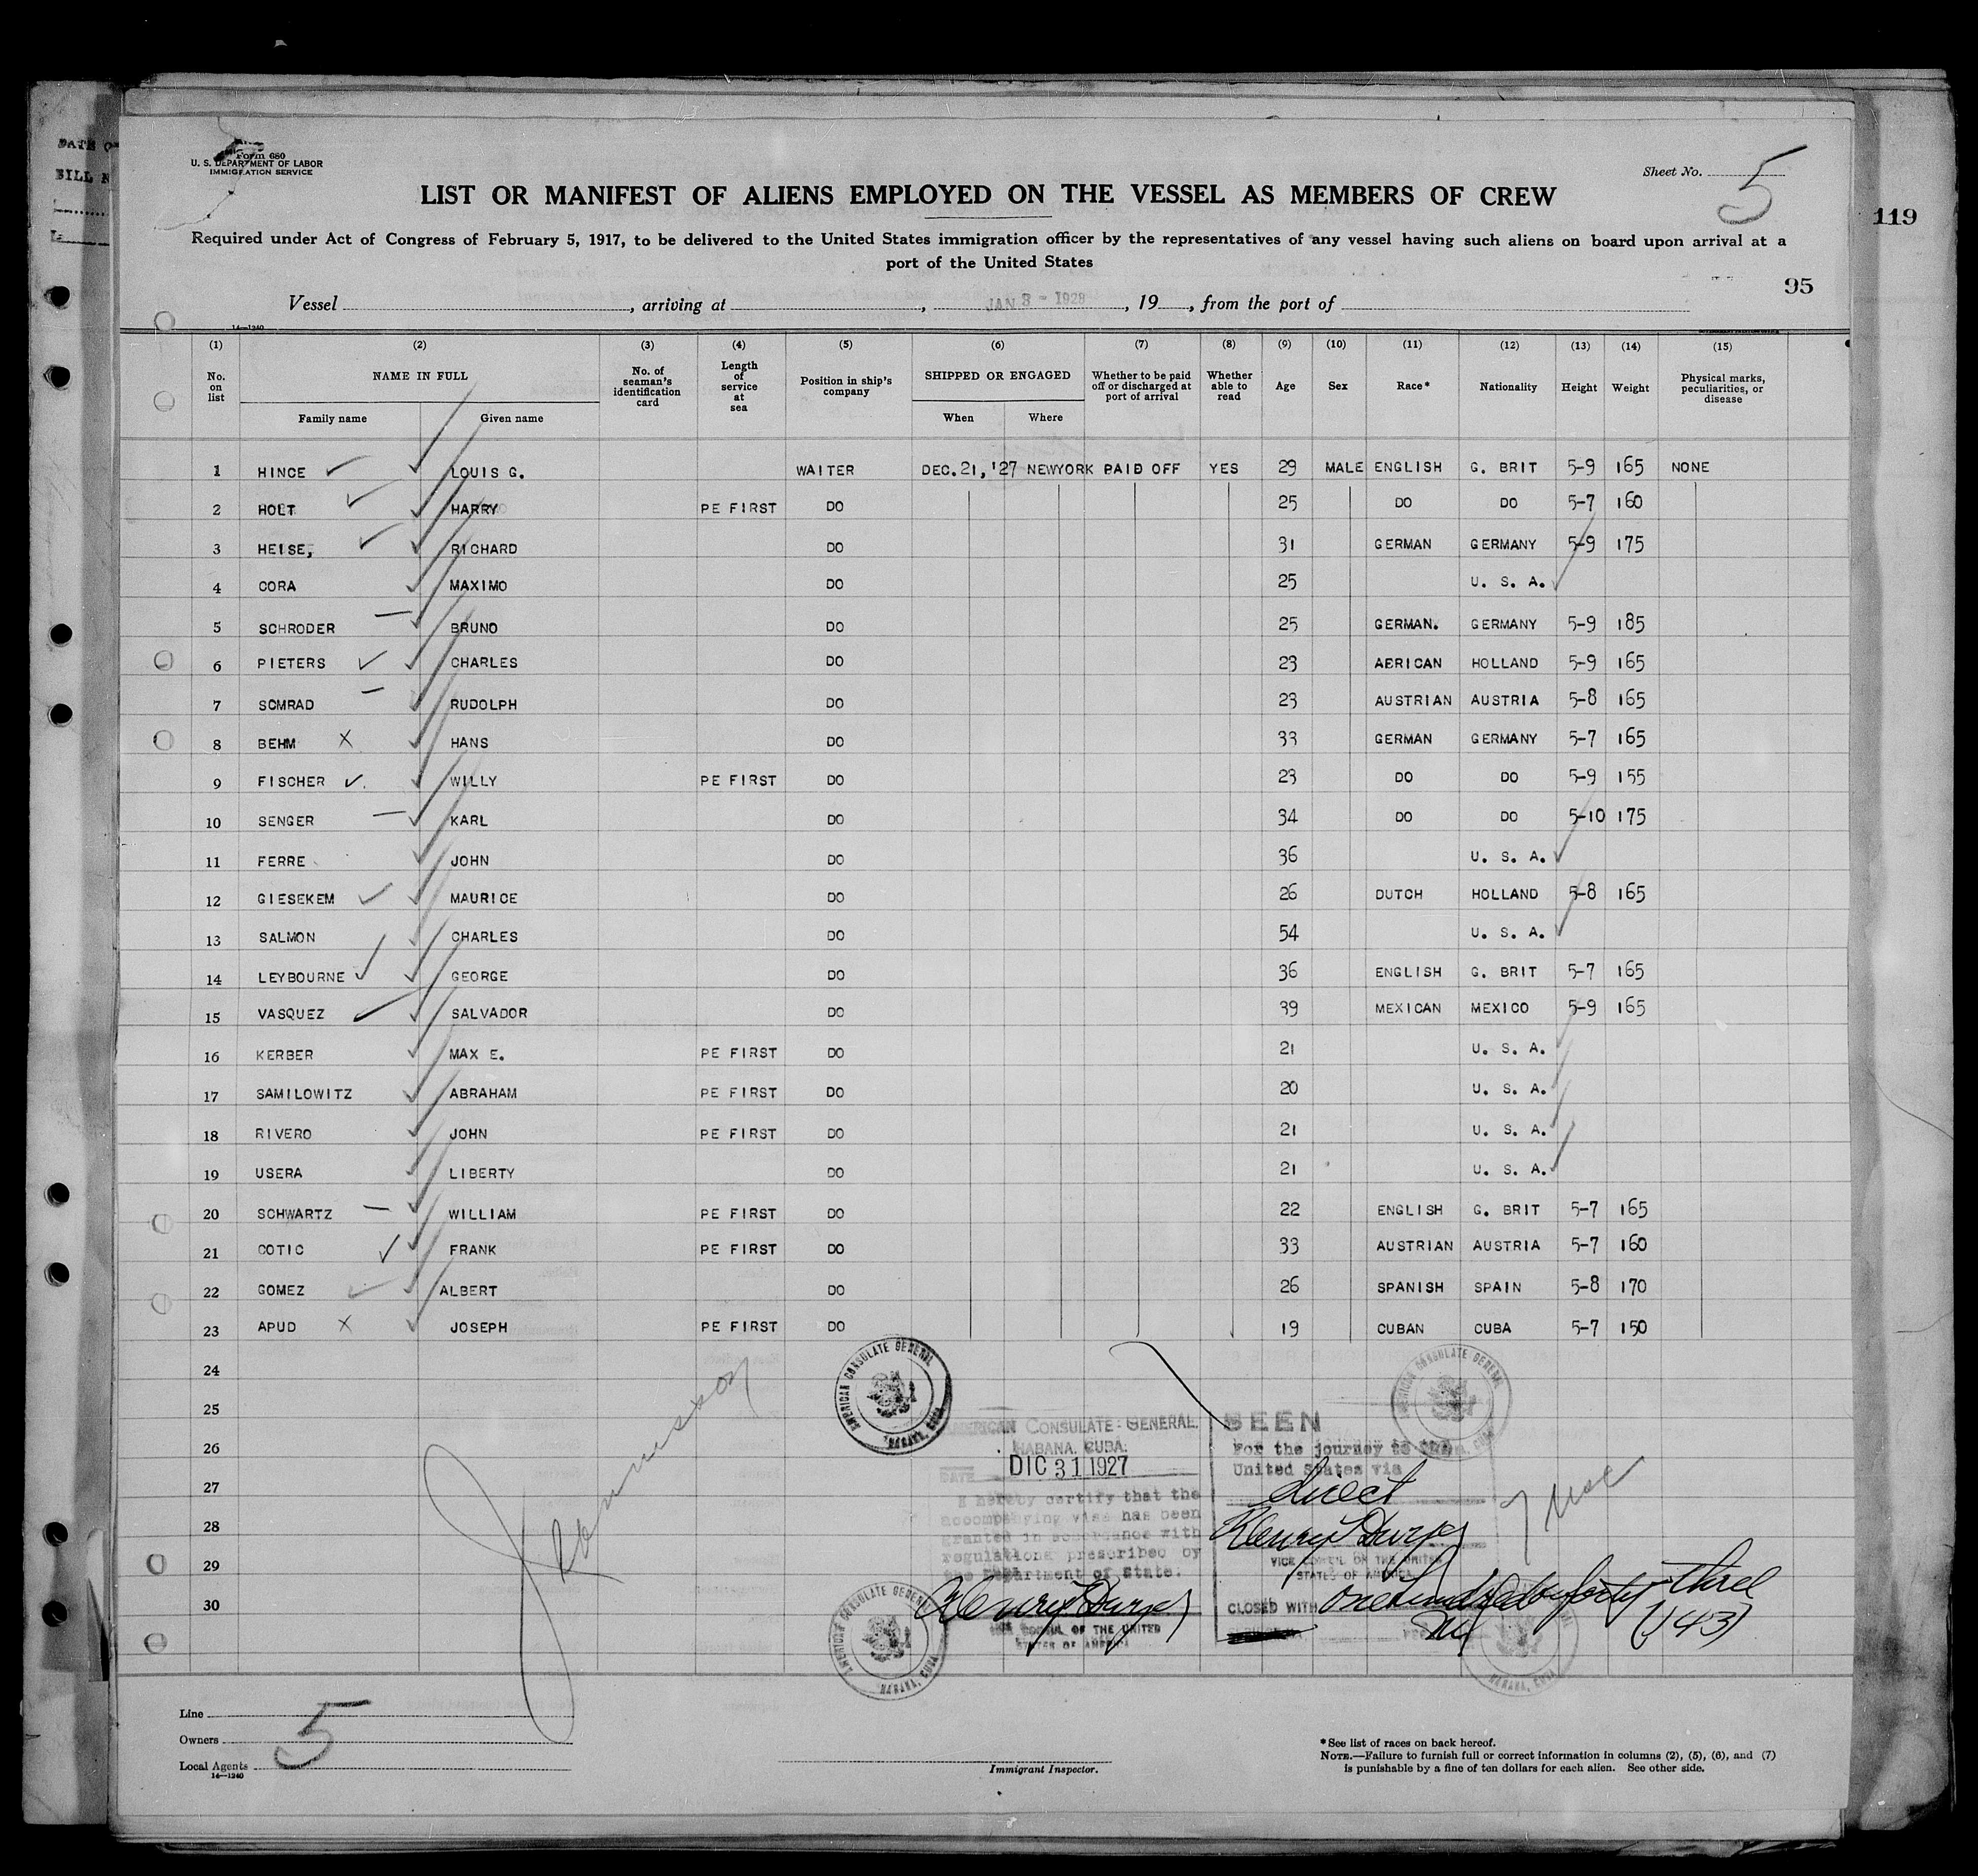 DATE O
BILL N
Form 680
U. S. DEPARTMENT OF LABOR
IMMIGRATION SERVICE
Sheet No. 5
LIST OR MANIFEST OF ALIENS EMPLOYED ON THE VESSEL AS MEMBERS OF CREW
119
Required under Act of Congress of February 5, 1917, to be delivered to the United States immigration officer by the representatives of any vessel having such aliens on board upon arrival at a
port of the United States
95
Vessel , arriving at , JAN 3 - 1928 , 19 , from the port of
14—1240
(1) (2) (3) (4) (5) (6) (7) (8) (9) (10) (11) (12) (13) (14) (15)
No. on list NAME IN FULL No. of seaman's identification card Length of service at sea Position in ship's company SHIPPED OR ENGAGED Whether to be paid off or discharged at port of arrival Whether able to read Age Sex Race* Nationality Height Weight Physical marks, peculiarities, or disease
Family name Given name When Where
1 HINCE LOUIS G. WAITER DEC. 21, '27 NEWYORK PAID OFF YES 29 MALE ENGLISH G. BRIT 5-9 165 NONE
2 HOLT HARRY PE FIRST DO 25 DO DO 5-7 160
3 HEISE, RICHARD DO 31 GERMAN GERMANY 5-9 175
4 CORA MAXIMO DO 25 U. S. A.
5 SCHRODER BRUNO DO 25 GERMAN. GERMANY 5-9 185
6 PIETERS CHARLES DO 23 AERICAN HOLLAND 5-9 165
7 SOMRAD RUDOLPH DO 23 AUSTRIAN AUSTRIA 5-8 165
8 BEHM X HANS DO 33 GERMAN GERMANY 5-7 165
9 FISCHER WILLY PE FIRST DO 23 DO DO 5-9 155
10 SENGER KARL DO 34 DO DO 5-10 175
11 FERRE JOHN DO 36 U. S. A.
12 GIESEKEM MAURICE DO 26 DUTCH HOLLAND 5-8 165
13 SALMON CHARLES DO 54 U. S. A.
14 LEYBOURNE GEORGE DO 36 ENGLISH G. BRIT 5-7 165
15 VASQUEZ SALVADOR DO 39 MEXICAN MEXICO 5-9 165
16 KERBER MAX E. PE FIRST DO 21 U. S. A.
17 SAMILOWITZ ABRAHAM PE FIRST DO 20 U. S. A.
18 RIVERO JOHN PE FIRST DO 21 U. S. A.
19 USERA LIBERTY DO 21 U. S. A.
20 SCHWARTZ WILLIAM PE FIRST DO 22 ENGLISH G. BRIT 5-7 165
21 COTIC FRANK PE FIRST DO 33 AUSTRIAN AUSTRIA 5-7 160
22 GOMEZ ALBERT DO 26 SPANISH SPAIN 5-8 170
23 APUD X JOSEPH PE FIRST DO 19 CUBAN CUBA 5-7 150
24
25
26
27
28
29
30
AMERICAN CONSULATE GENERAL HABANA, CUBA
AMERICAN CONSULATE GENERAL
HABANA, CUBA.
DATE DIC 31 1927
I hereby certify that the
accompanying visa has been
granted in accordance with
regulations prescribed by
the Department of State.
VICE CONSUL OF THE UNITED
STATES OF AMERICA
AMERICAN CONSULATE GENERAL HABANA, CUBA
AMERICAN CONSULATE GENERAL
SEEN
For the journey to the
United States via
direct
VICE CONSUL OF THE UNITED
STATES OF AMERICA
CLOSED WITH one hundred & forty-three
(143)
HABANA, CUBA
Line
Owners
Local Agents
14—1240
5
Immigrant Inspector.
*See list of races on back hereof.
NOTE.—Failure to furnish full or correct information in columns (2), (5), (6), and (7)
is punishable by a fine of ten dollars for each alien. See other side.